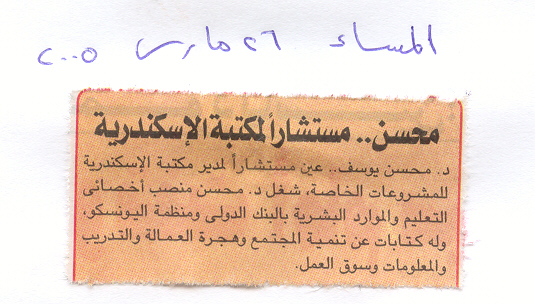 المساء ٢٦ مارس ٢٠٠٥
محسن.. مستشاراً لمكتبة الإسكندرية
د. محسن يوسف.. عين مستشاراً لمدير مكتبة الإسكندرية
للمشروعات الخاصة، شغل د. محسن منصب أخصائى
التعليم والموارد البشرية بالبنك الدولى ومنظمة اليونسكو،
وله كتابات عن تنمية المجتمع وهجرة العمالة والتدريب
والمعلومات وسوق العمل.